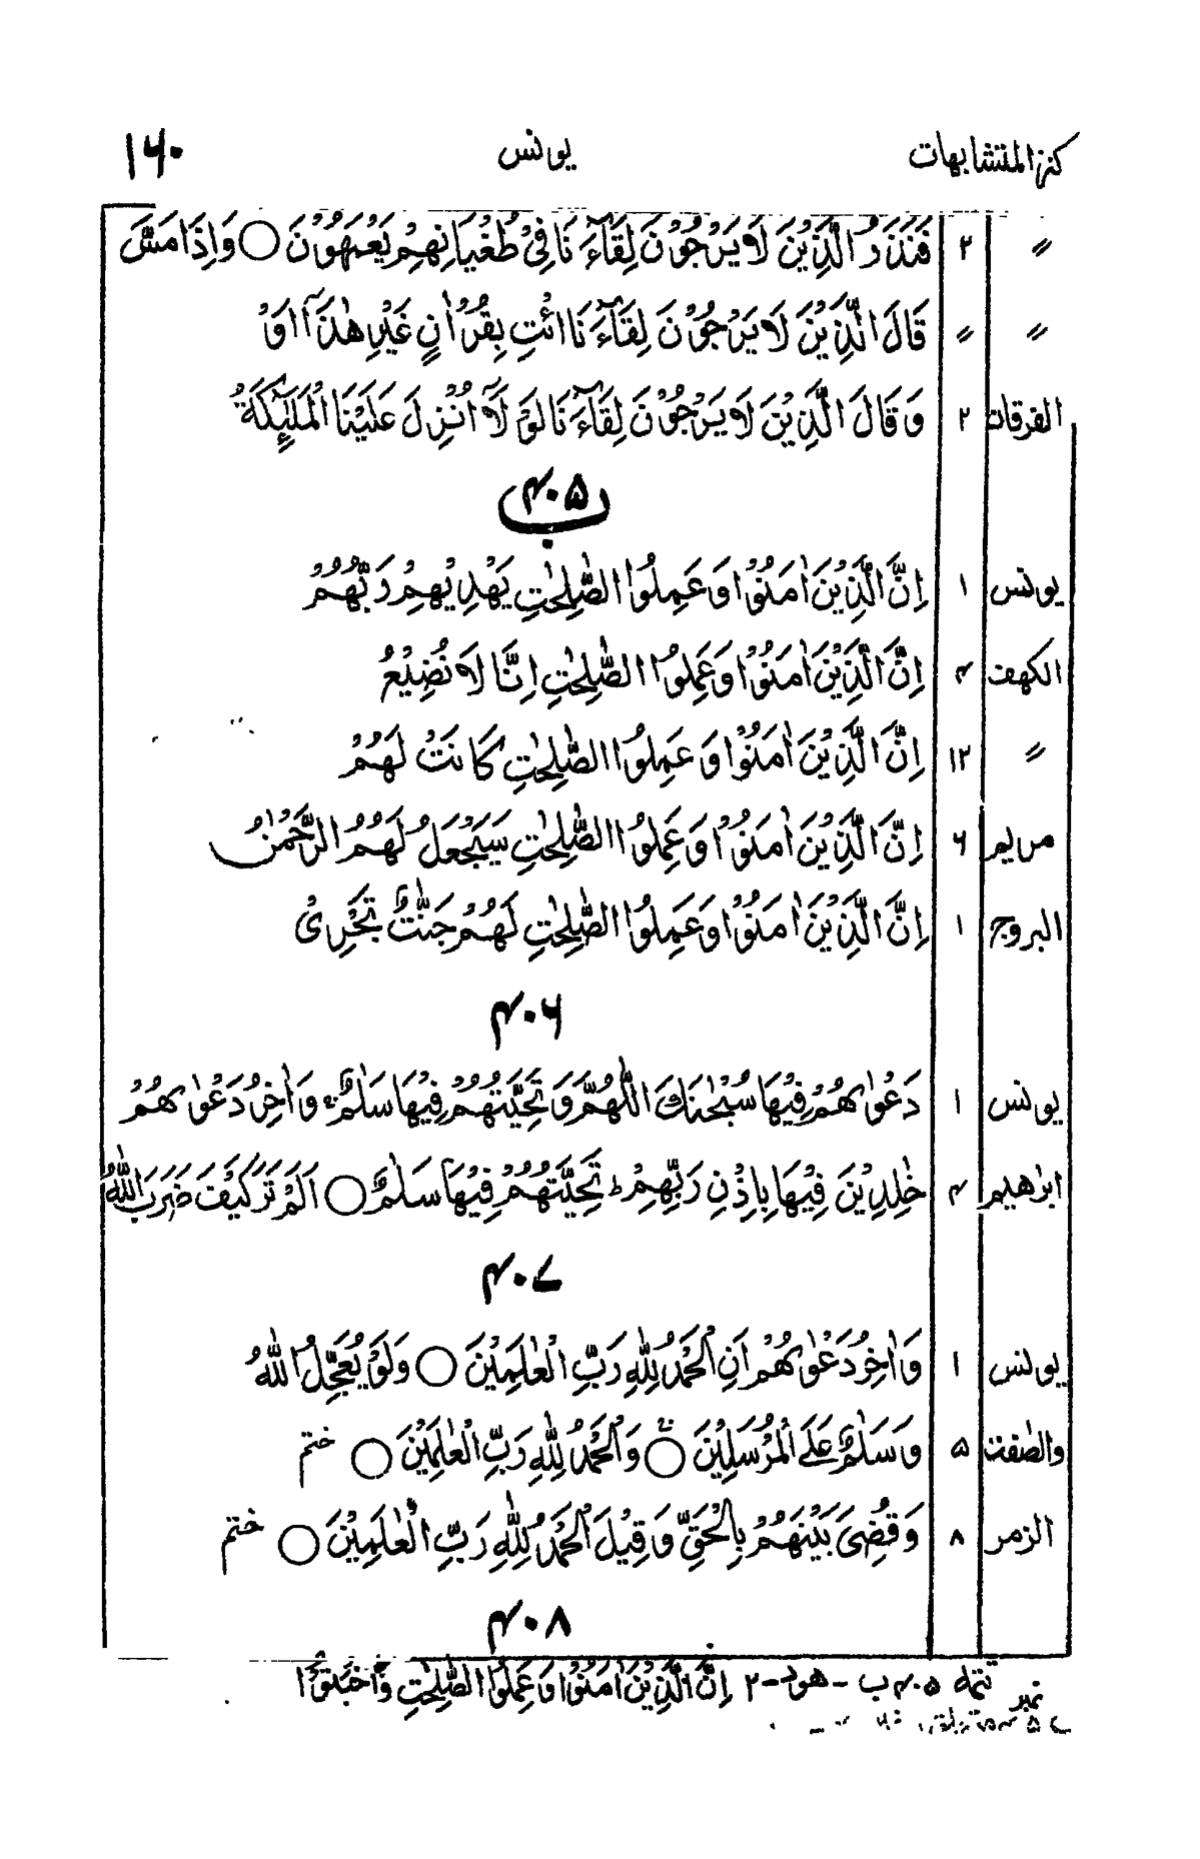 كنز المتشابهات یونس ۱۶۰
〃 ۲ فَنَذَرُ الَّذِیْنَ لَا یَرْجُوْنَ لِقَآءَنَا فِیْ طُغْیَانِهِمْ یَعْمَهُوْنَ ○ وَاِذَا مَسَّ
〃 〃 قَالَ الَّذِیْنَ لَا یَرْجُوْنَ لِقَآءَنَا ائْتِ بِقُرْاٰنٍ غَیْرِ هٰذَآ اَوْ
الفرقان ۲ وَقَالَ الَّذِیْنَ لَا یَرْجُوْنَ لِقَآءَنَا لَوْ لَآ اُنْزِلَ عَلَیْنَا الْمَلٰٓئِكَةُ
۴۰۵ ب
یونس ۱ اِنَّ الَّذِیْنَ اٰمَنُوْا وَعَمِلُوا الصّٰلِحٰتِ یَهْدِیْهِمْ رَبُّهُمْ
الكهف ۴ اِنَّ الَّذِیْنَ اٰمَنُوْا وَعَمِلُوا الصّٰلِحٰتِ اِنَّا لَا نُضِیْعُ
〃 ۱۲ اِنَّ الَّذِیْنَ اٰمَنُوْا وَعَمِلُوا الصّٰلِحٰتِ كَانَتْ لَهُمْ
مریم ۶ اِنَّ الَّذِیْنَ اٰمَنُوْا وَعَمِلُوا الصّٰلِحٰتِ سَیَجْعَلُ لَهُمُ الرَّحْمٰنُ
البروج ۱ اِنَّ الَّذِیْنَ اٰمَنُوْا وَعَمِلُوا الصّٰلِحٰتِ لَهُمْ جَنّٰتٌ تَجْرِیْ
۴۰۶
یونس ۱ دَعْوٰىهُمْ فِیْهَا سُبْحٰنَكَ اللّٰهُمَّ وَتَحِیَّتُهُمْ فِیْهَا سَلٰمٌ ۚ وَاٰخِرُ دَعْوٰىهُمْ
ابرٰهیم ۴ خٰلِدِیْنَ فِیْهَا بِاِذْنِ رَبِّهِمْ ؕ تَحِیَّتُهُمْ فِیْهَا سَلٰمٌ ○ اَلَمْ تَرَ كَیْفَ ضَرَبَ اللّٰهُ
۴۰۷
یونس ۱ وَاٰخِرُ دَعْوٰىهُمْ اَنِ الْحَمْدُ لِلّٰهِ رَبِّ الْعٰلَمِیْنَ ○ وَلَوْ یُعَجِّلُ اللّٰهُ
والصّٰفّٰت ۵ وَسَلٰمٌ عَلَى الْمُرْسَلِیْنَ ○ وَالْحَمْدُ لِلّٰهِ رَبِّ الْعٰلَمِیْنَ ○ ختم
الزمر ۸ وَقُضِیَ بَیْنَهُمْ بِالْحَقِّ وَقِیْلَ الْحَمْدُ لِلّٰهِ رَبِّ الْعٰلَمِیْنَ ○ ختم
۴۰۸
تتمہ نمبر ۴۰۵ ب - هود - ۲ اِنَّ الَّذِیْنَ اٰمَنُوْا وَعَمِلُوا الصّٰلِحٰتِ وَاَخْبَتُوْٓا